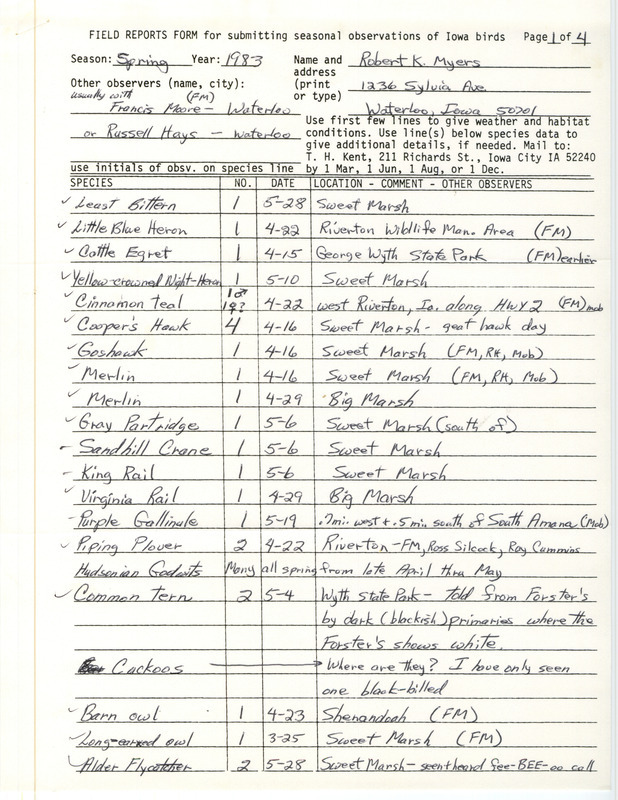 FIELD REPORTS FORM for submitting seasonal observations of Iowa birds Page 1 of 4
Season: Spring Year: 1983 Name and Robert K. Myers
address
Other observers (name, city): (print 1236 Sylvia Ave.
usually with (FM) or type)
Francis Moore - Waterloo Waterloo, Iowa 50701
or Russell Hays - Waterloo Use first few lines to give weather and habitat
conditions. Use line(s) below species data to
give additional details, if needed. Mail to:
T. H. Kent, 211 Richards St., Iowa City IA 52240
use initials of obsv. on species line by 1 Mar, 1 Jun, 1 Aug, or 1 Dec.
SPECIES NO. DATE LOCATION - COMMENT - OTHER OBSERVERS
✓ Least Bittern 1 5-28 Sweet Marsh
✓ Little Blue Heron 1 4-22 Riverton Wildlife Man. Area (FM)
✓ Cattle Egret 1 4-15 George Wyth State Park (FM) earlier
✓ Yellow-crowned Night-Heron 1 5-10 Sweet Marsh
✓ Cinnamon teal 1♂ 1♀? 4-22 west Riverton, Ia. along HWY 2 (FM) mob
✓ Cooper's Hawk 4 4-16 Sweet Marsh - great hawk day
✓ Goshawk 1 4-16 Sweet Marsh (FM, RH, Mob)
✓ Merlin 1 4-16 Sweet Marsh (FM, RH, Mob)
✓ Merlin 1 4-29 Big Marsh
✓ Gray Partridge 1 5-6 Sweet Marsh (south of)
- Sandhill Crane 1 5-6 Sweet Marsh
- King Rail 1 5-6 Sweet Marsh
✓ Virginia Rail 1 4-29 Big Marsh
- Purple Gallinule 1 5-19 .7mi. west + .5 mi. south of South Amana (Mob)
✓ Piping Plover 2 4-22 Riverton - FM, Ross Silcock, Roy Cummins
Hudsonian Godwits Many all spring from late April thru May
✓ Common tern 2 5-4 Wyth State Park - told from Forster's
by dark (blackish) primaries where the
Forster's shows white.
Cuckoos → Where are they? I have only seen
one black-billed
✓ Barn owl 1 4-23 Shenandoah (FM)
✓ Long-eared owl 1 3-25 Sweet Marsh (FM)
✓ Alder Flycatcher 2 5-28 Sweet Marsh - seen+heard fee-BEE-oo call